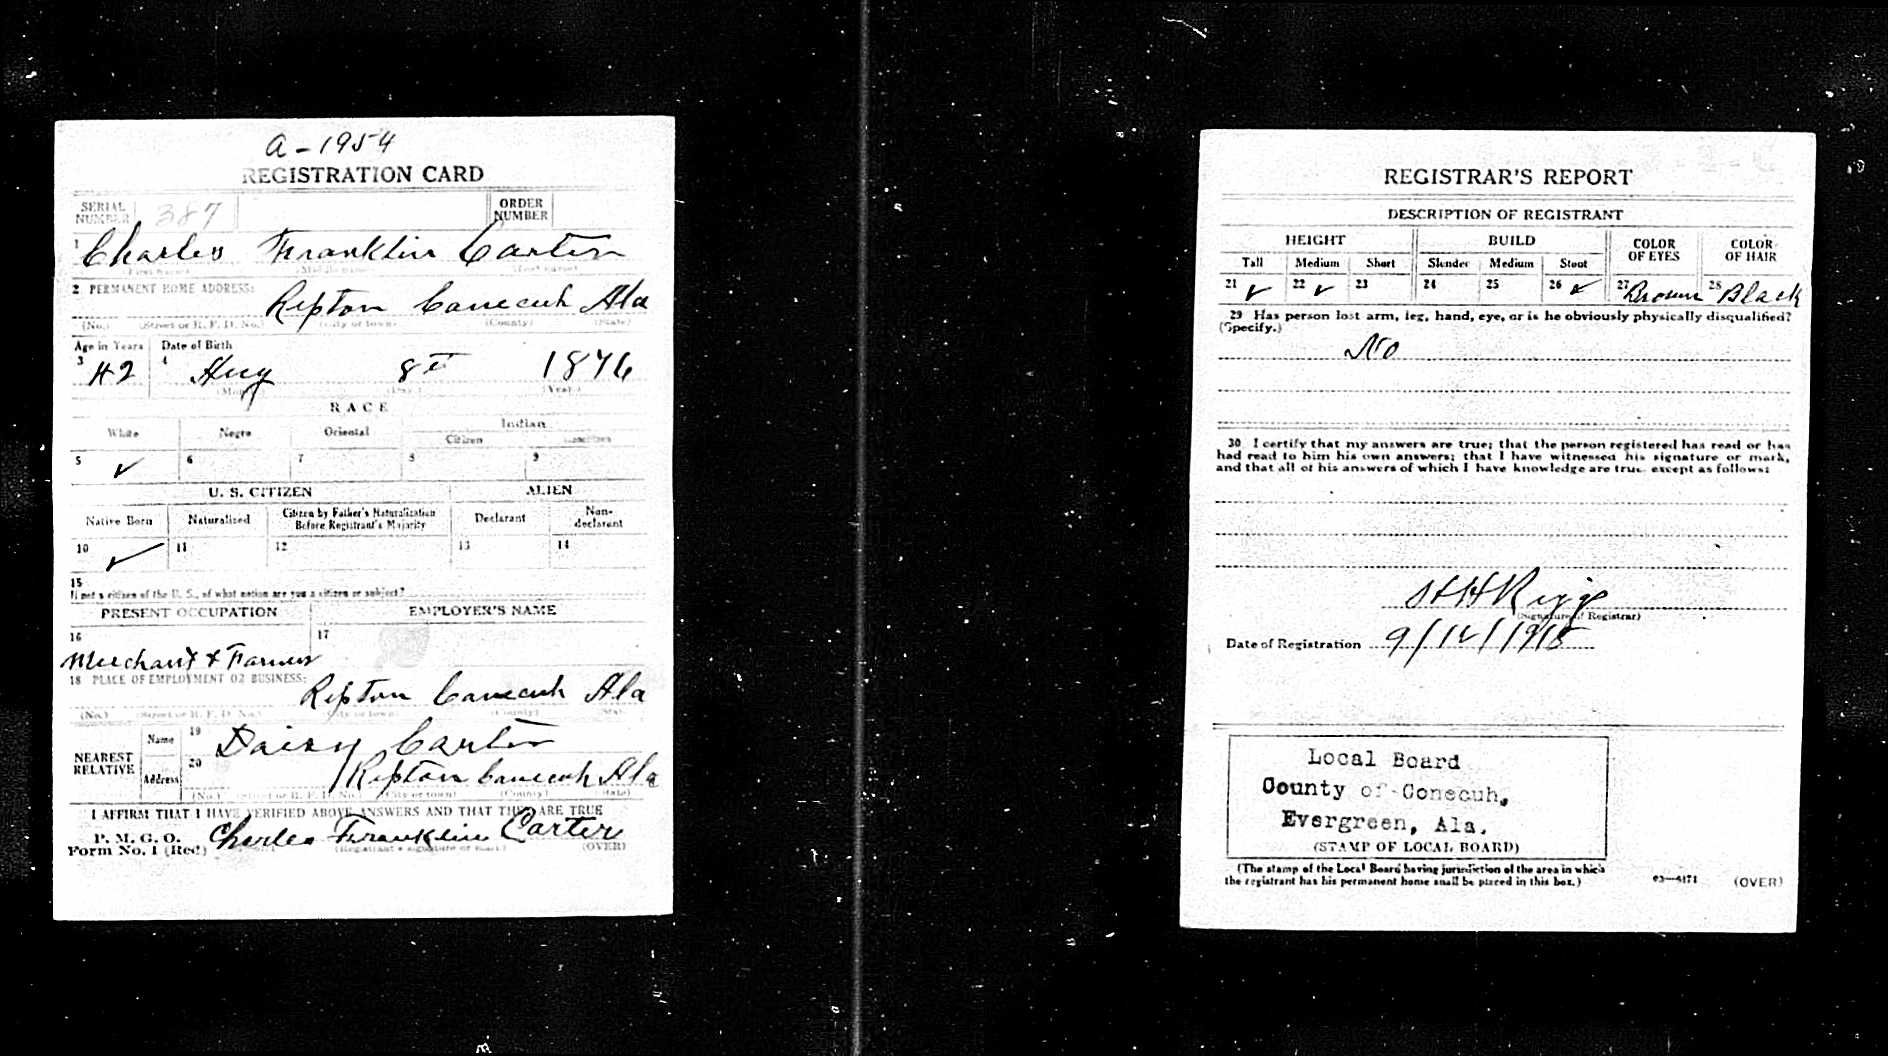 A-1954
REGISTRATION CARD
SERIAL NUMBER 387 ORDER NUMBER
1 Charles Franklin Carter
(First name) (Middle name) (Last name)
2 PERMANENT HOME ADDRESS:
Repton Conecuh Ala
(No.) (Street or R. F. D. No.) (City or town) (County) (State)
Age in Years Date of Birth
3 42 4 Aug 8th 1876
(Year)
RACE
White Negro Oriental Indian
Citizen
5 ✓ 6 7 8 9
U. S. CITIZEN ALIEN
Native Born Naturalized Citizen by Father's Naturalization Before Registrant's Majority Declarant Non-declarant
10 ✓ 11 12 13 14
15
If not a citizen of the U. S., of what nation are you a citizen or subject?
PRESENT OCCUPATION EMPLOYER'S NAME
16 17
Merchant & Farmer
18 PLACE OF EMPLOYMENT OR BUSINESS:
Repton Conecuh Ala
(No.) (Street or R. F. D. No.) (City or town) (County) (State)
NEAREST RELATIVE Name 19 Daisy Carter
Address 20 Repton Conecuh Ala
(No.) (Street or R. F. D. No.) (City or town) (County) (State)
I AFFIRM THAT I HAVE VERIFIED ABOVE ANSWERS AND THAT THEY ARE TRUE
P. M. G. O.
Form No. 1 (Red) Charles Franklin Carter
(Registrant's signature or mark) (OVER)
REGISTRAR'S REPORT
DESCRIPTION OF REGISTRANT
HEIGHT BUILD COLOR OF EYES COLOR OF HAIR
Tall Medium Short Slender Medium Stout
21 ✓ 22 ✓ 23 24 25 26 ✓ 27 Brown 28 Black
29 Has person lost arm, leg, hand, eye, or is he obviously physically disqualified?
(Specify.)
No
30 I certify that my answers are true; that the person registered has read or has
had read to him his own answers; that I have witnessed his signature or mark,
and that all of his answers of which I have knowledge are true, except as follows:
H H Riggs
(Signature of Registrar)
Date of Registration 9/12/1918
Local Board
County of Conecuh,
Evergreen, Ala.
(STAMP OF LOCAL BOARD)
(The stamp of the Local Board having jurisdiction of the area in which
the registrant has his permanent home shall be placed in this box.)
03—6171 (OVER)